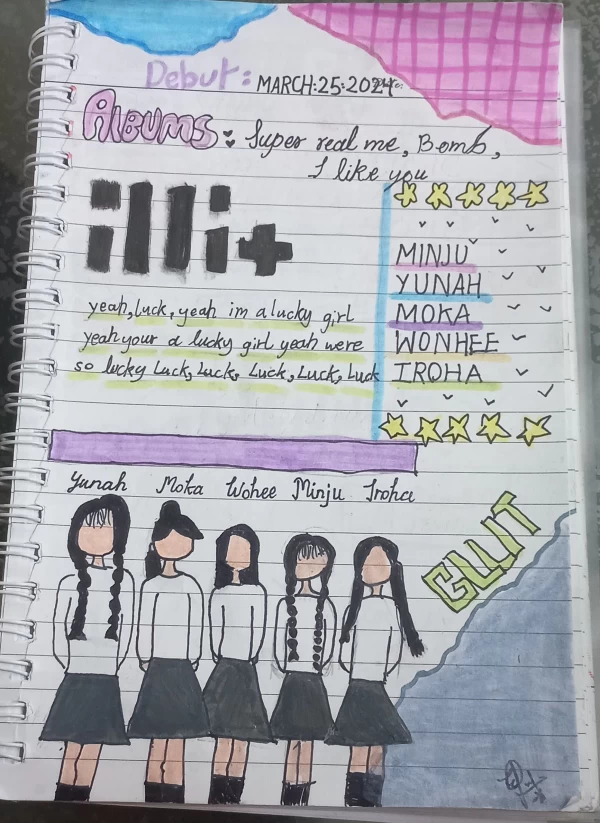 Debut: MARCH:25:2024
ALBUMS: Super real me, Bomb,
I like you
illi+
MINJU
YUNAH
MOKA
WONHEE
IROHA
yeah, luck, yeah im a lucky girl
yeah your a lucky girl yeah were
so lucky Luck, Luck, Luck, Luck, Luck
Yunah Moka Wohee Minju Iroha
GLLIT